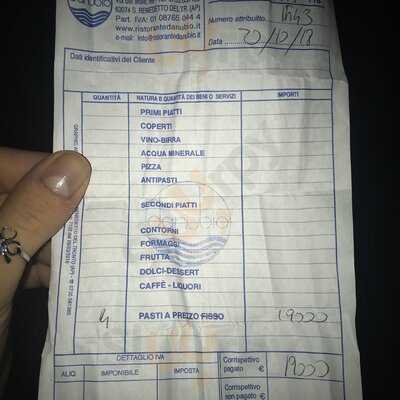 danubio
63074 S. BENEDETTO DEL TR. (AP)
Part. IVA: 01 08765 044 4
www.ristorantedanubio.it
e-mail: info@ristorantedanubio.it
Numero attribuito
Data 30/12/19
Dati identificativi del Cliente
QUANTITÀ NATURA E QUANTITÀ DEI BENI O SERVIZI IMPORTI
PRIMI PIATTI
COPERTI
VINO-BIRRA
ACQUA MINERALE
PIZZA
ANTIPASTI
SECONDI PIATTI
danubio
CONTORNI
FORMAGGI
FRUTTA
DOLCI-DESSERT
CAFFÈ - LIQUORI
4 PASTI A PREZZO FISSO 19000
DETTAGLIO IVA Corrispettivo
pagato € 19000
ALIQ. IMPONIBILE IMPOSTA
Corrispettivo
non pagato €